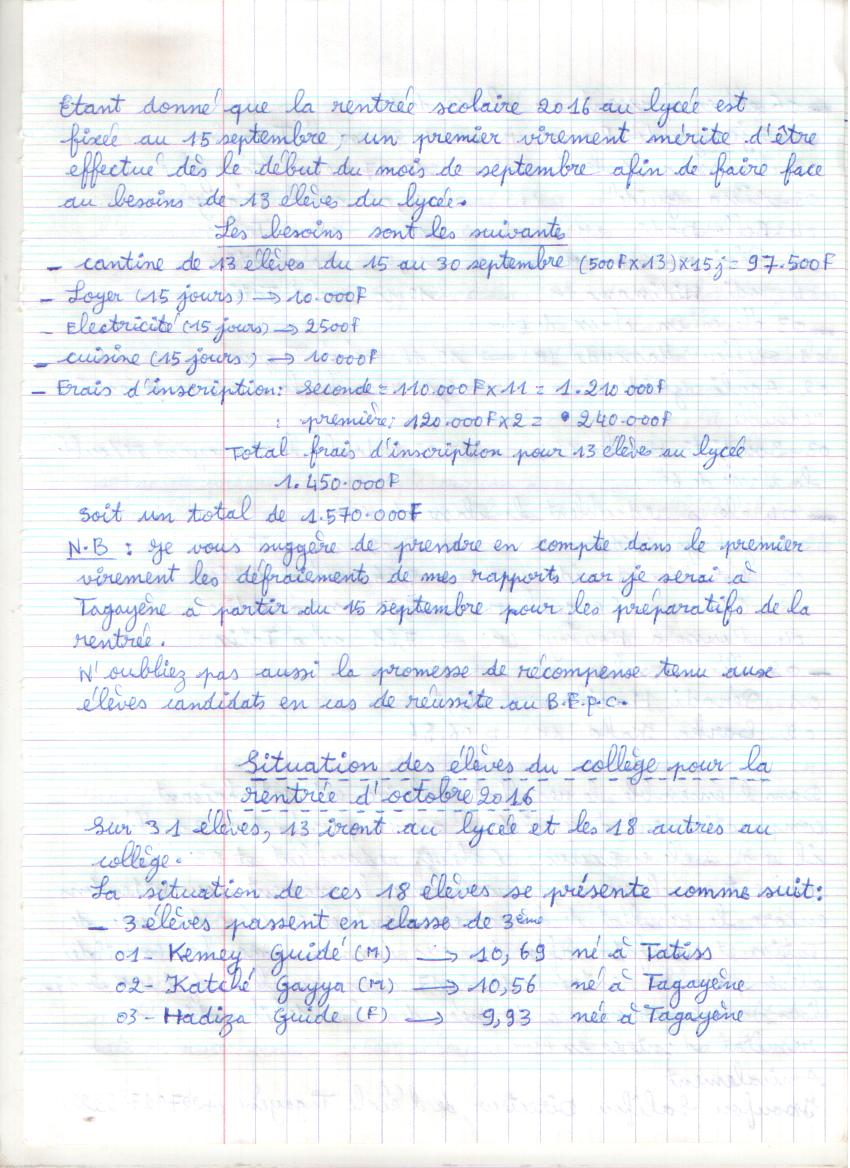 Etant donné que la rentrée scolaire 2016 au lycée est
fixée au 15 septembre, un premier virement mérite d'être
effectué dès le début du mois de septembre afin de faire face
au besoins de 13 élèves du lycée.
Les besoins sont les suivants
- cantine de 13 élèves du 15 au 30 septembre (500F×13)×15j = 97.500F
- Loyer (15 jours) → 10.000F
- Electricité (15 jours) → 2500F
- cuisine (15 jours) → 10.000F
- Frais d'inscription: seconde = 110.000F×11 = 1.210.000F
: première; 120.000F×2 = 240.000F
Total frais d'inscription pour 13 élèves au lycée
1.450.000F
Soit un total de 1.570.000F
N.B : Je vous suggère de prendre en compte dans le premier
virement les défraiements de mes rapports car je serai à
Tagayène à partir du 15 septembre pour les préparatifs de la
rentrée.
N'oubliez pas aussi la promesse de récompense tenu aux
élèves candidats en cas de réussite au B.E.P.C.
Situation des élèves du collège pour la
rentrée d'octobre 2016
Sur 31 élèves, 13 iront au lycée et les 18 autres au
collège.
La situation de ces 18 élèves se présente comme suit:
- 3 élèves passent en classe de 3ème
01- Kemey Guidé (M) → 10,69 né à Tatiss
02- Katché Gayya (M) → 10,56 né à Tagayène
03- Hadiza Guidé (F) → 9,93 née à Tagayène